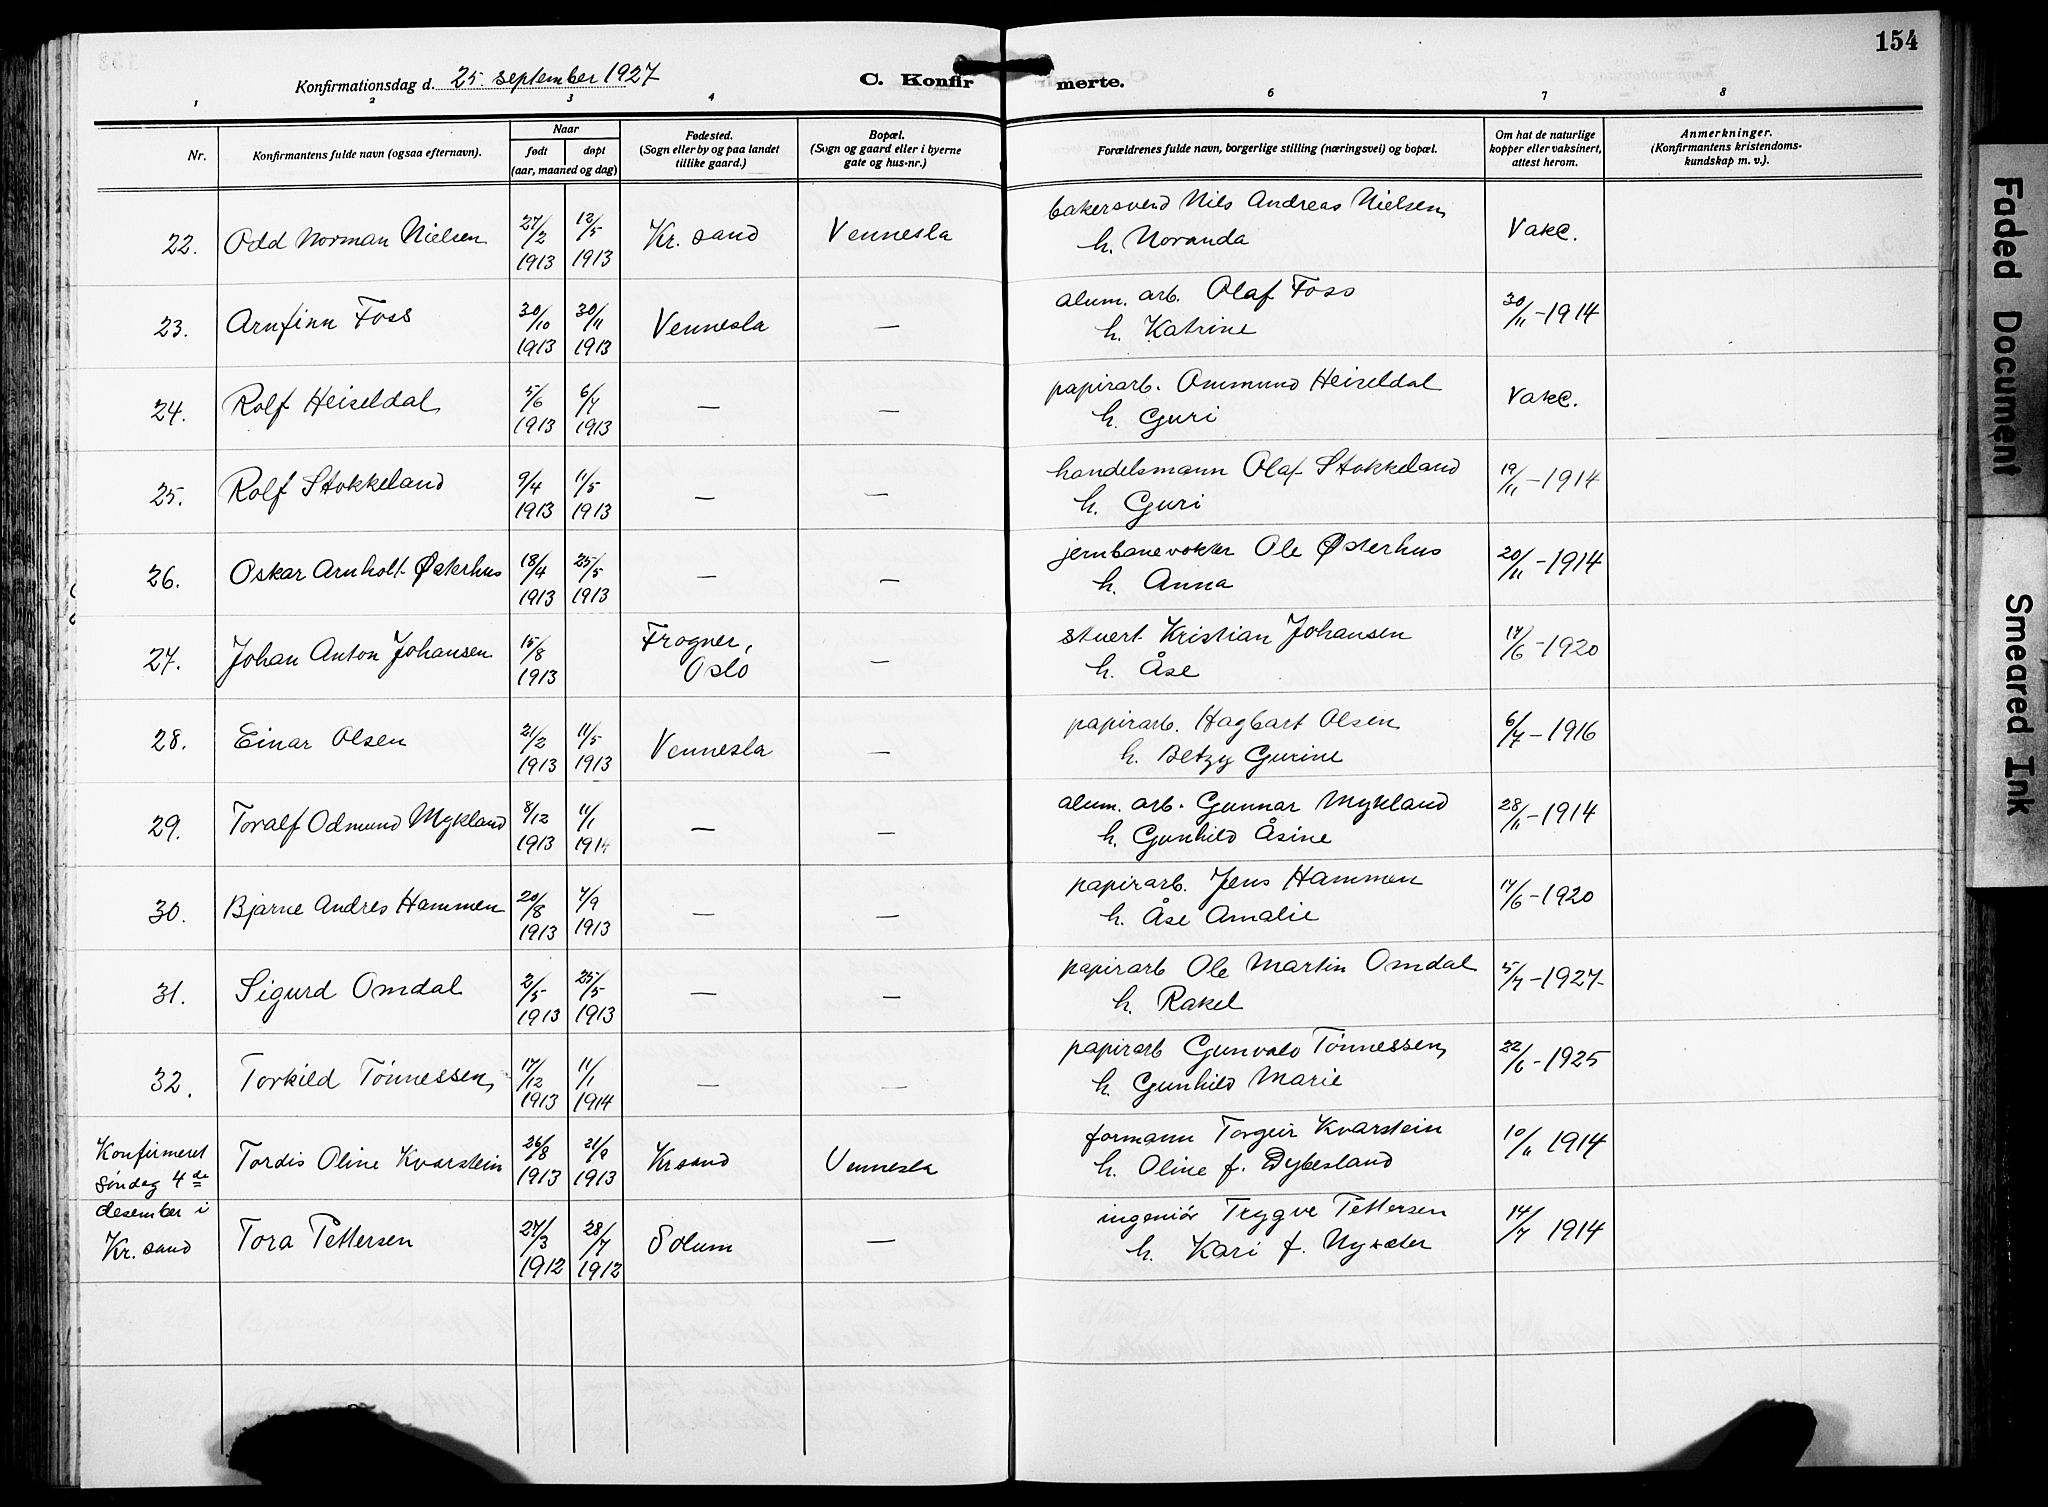 154
Konfirmationsdag d. 25. september 1927
C. Konfirmerte.
1 2 3 4 5 6 7 8
Nr.
Konfirmantens fulde navn (ogsaa efternavn).
Naar
født
døpt
(aar, maaned og dag)
Fødested.
(Sogn eller by og paa landet
tillike gaard.)
Bopæl.
(Sogn og gaard eller i byerne
gate og hus-nr.)
Forældrenes fulde navn, borgerlige stilling (næringsvei) og bopæl.
Om hat de naturlige
kopper eller vaksinert,
attest herom.
Anmerkninger.
(Konfirmantens kristendoms-
kundskap m. v.).
22. Odd Norman Nielsen 27/2 1913 12/5 1913 Kr. sand Vennesla bakersvend Nils Andreas Nielsen, Vakc.
h. Noranda
23. Arnfinn Foss 30/10 1913 30/11 1913 Vennesla — alum. arb. Olaf Foss 30/11-1914
h. Katrine
24. Rolf Heiseldal 5/6 1913 6/7 1913 — — papirarb. Ommund Heiseldal Vakc.
h. Guri
25. Rolf Stokkeland 9/4 1913 11/5 1913 — — handelsmann Olaf Stokkeland 19/11-1914
h. Guri
26. Oskar Arnholt Østerhus 18/4 1913 25/5 1913 — — jernbanevokter Ole Østerhus 20/11-1914
h. Anna
27. Johan Anton Johansen 15/8 1913 Frogner, Oslo — stuert Kristian Johansen 17/6-1920
h. Åse
28. Einar Olsen 21/2 1913 11/5 1913 Vennesla — papirarb. Hagbart Olsen 6/7-1916
h. Betzy Gurine
29. Toralf Odmund Mykland 8/12 1913 11/1 1914 — — alum. arb. Gunnar Mykland 28/11-1914
h. Gunhild Åsine
30. Bjarne Andres Hammen 20/8 1913 7/9 1913 — — papirarb. Jens Hammen 17/6-1920
h. Åse Amalie
31. Sigurd Omdal 2/5 1913 25/5 1913 — — papirarb Ole Martin Omdal 5/7-1927
h. Rakel
32. Torkild Tønnessen, 17/12 1913 11/1 1914 — — papirarb Gunvald Tønnessen, 22/6-1925
h. Gunhild Marie
Konfirmeret
Søndag 4de
desember i
Kr. sand
Tordis Oline Kvarstein 26/8 1913 21/9 1913 Kr sand Vennesla formann Torgeir Kvarstein 10/11 1914
h. Oline f. Dybesland
Tora Pettersen 27/3 1912 28/7 1912 Solum — ingeniør Trygve Pettersen 14/7 1914
h. Kari f. Nysæter
Faded Document
Smeared Ink